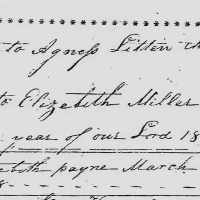 to Agness Litten
to Elizabeth Miller
year of our Lord 18
beth payne March
8